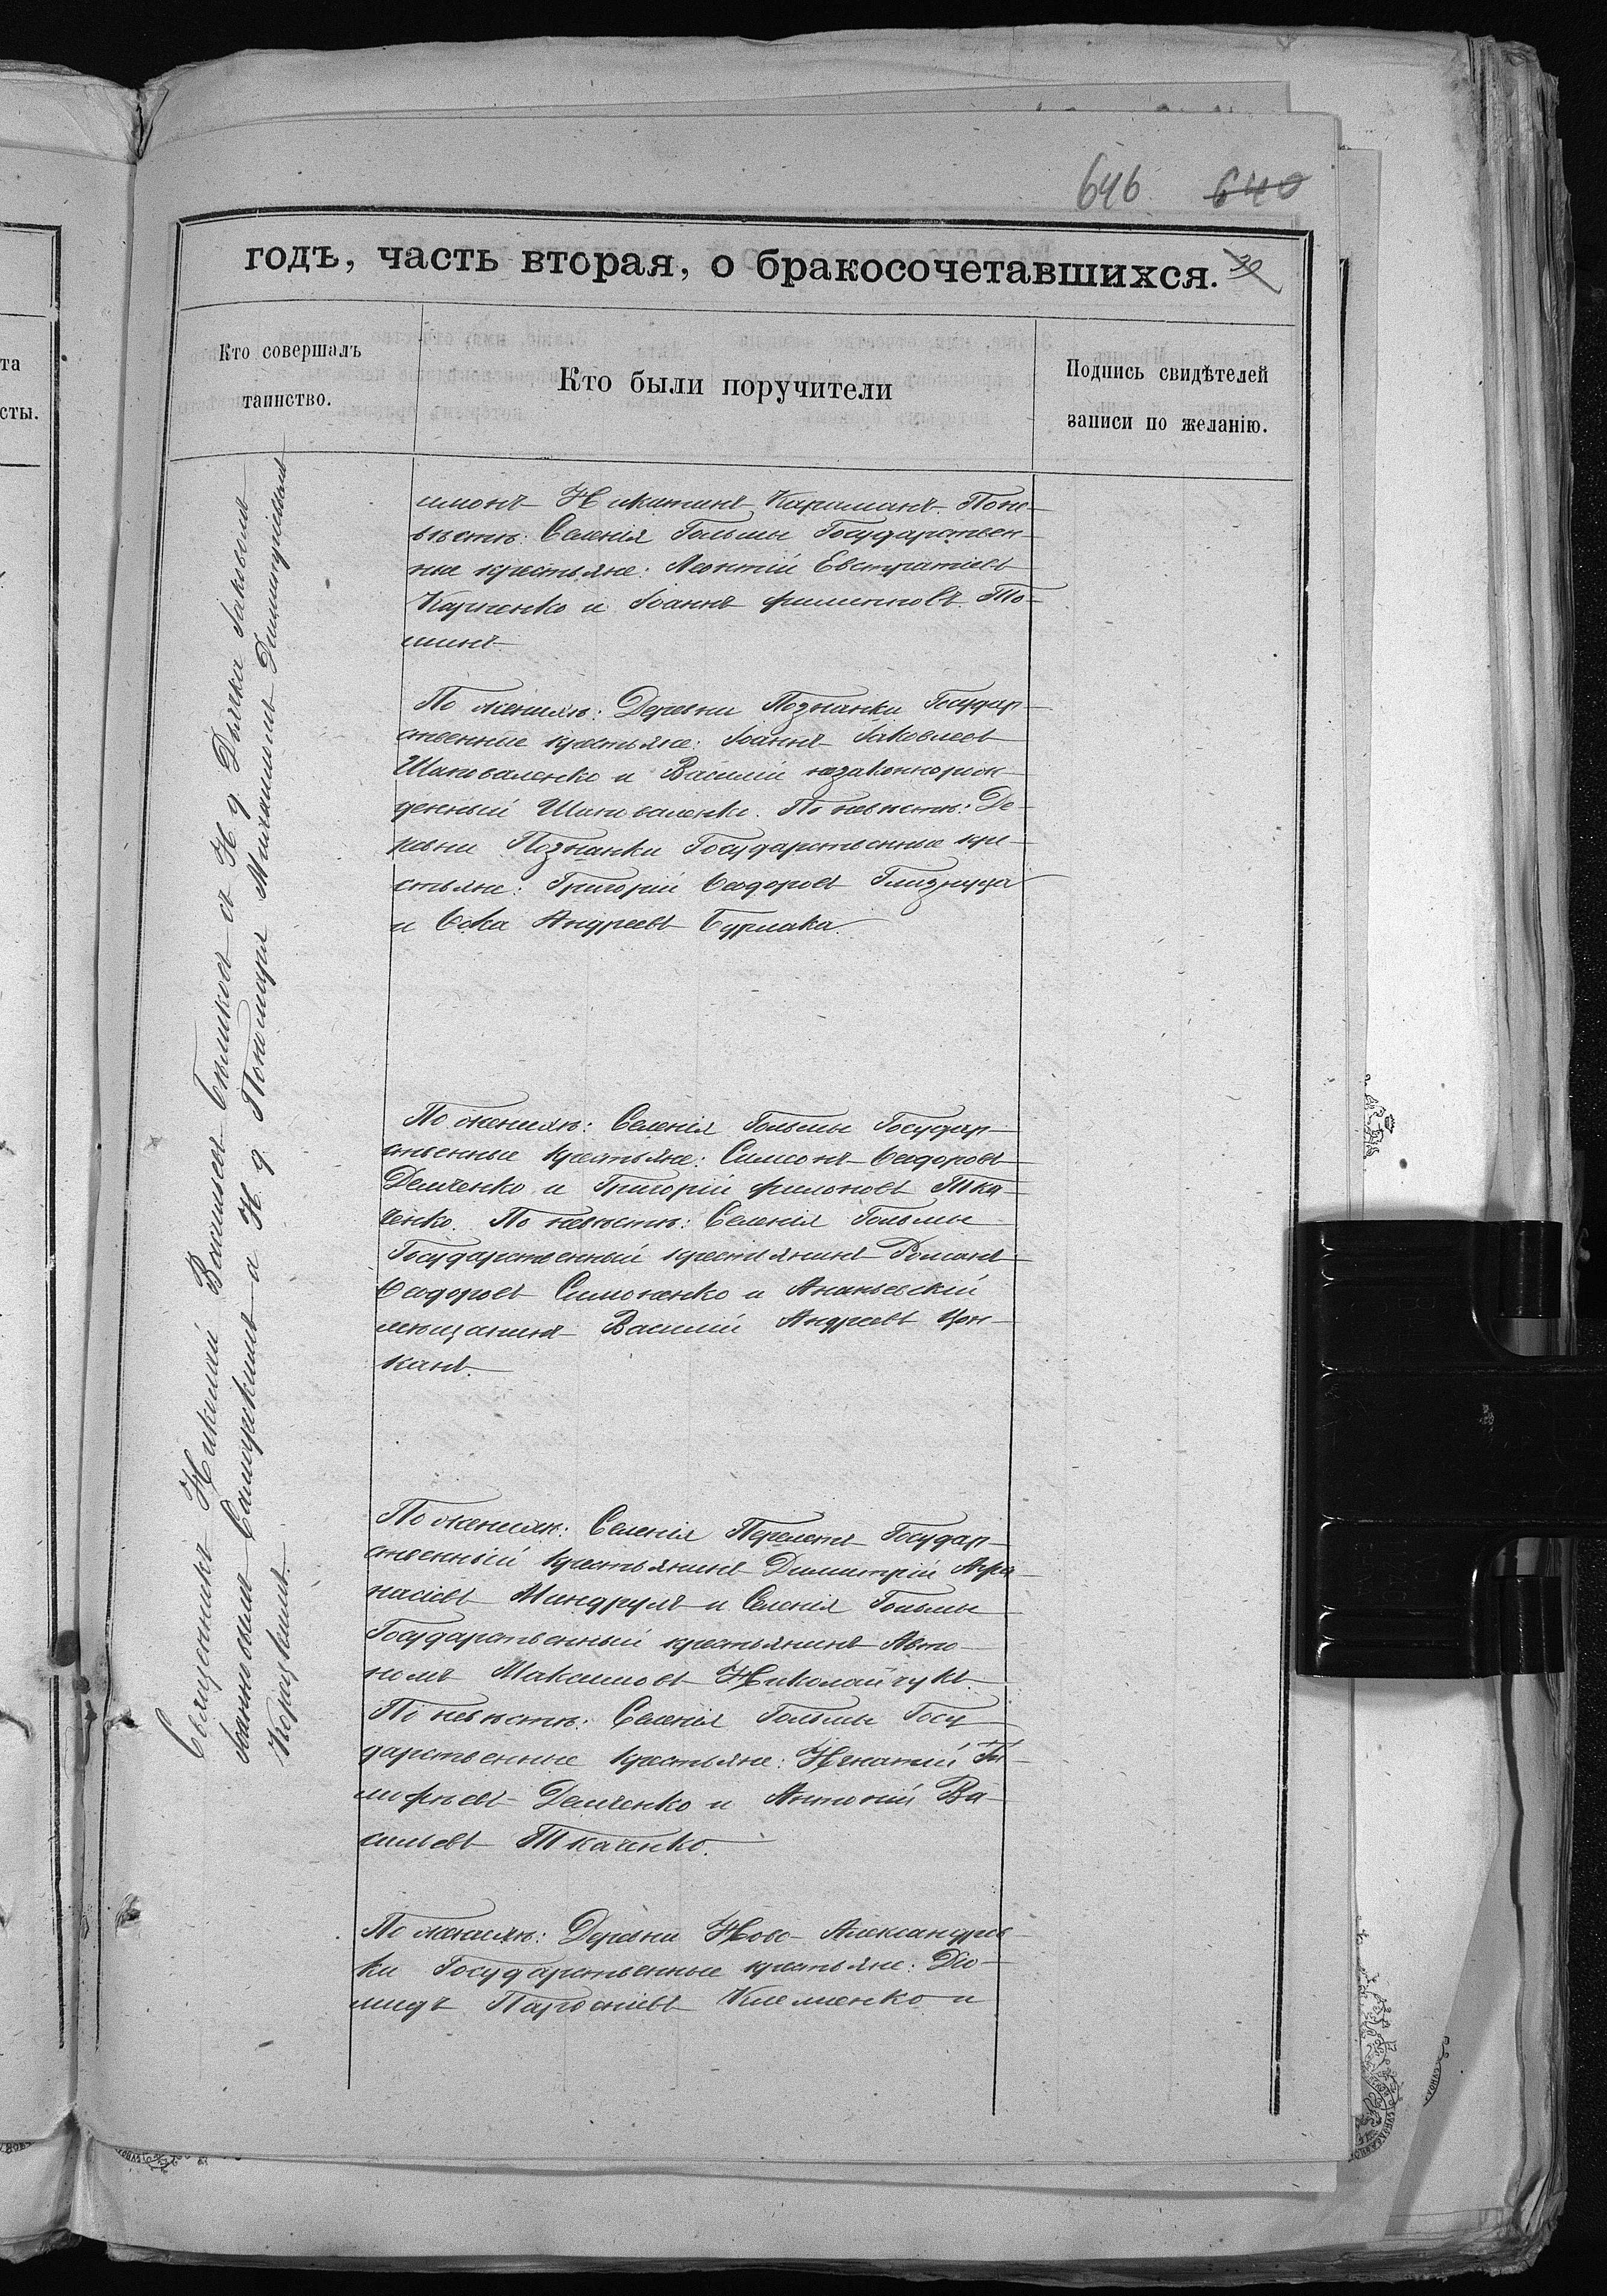 646 640
годъ, часть вторая, о бракосочетавшихся. 39
Кто совершалъ
таинство.
Кто были поручители
Подпись свидѣтелей
записи по желанію.
та
сты.
Священникъ Николай Васильевъ Бѣликовъ съ И. д. Дьячка Іаковомъ
Іоанновымъ Самарскимъ и И. д. Пономаря Михаиломъ Димитріевымъ
имонъ Никитинъ Кариманъ. По не-
вѣстѣ: Селенія Гольмы Государствен-
ные крестьяне: Леонтій Евстратіевъ
Карпенко и Іоаннъ Филипповъ То-
минъ.
По женихѣ: Деревни Познанки Государ-
ственные крестьяне: Іоаннъ Іаковлевъ
Шаповаленко и Василій незаконнорож-
денный Шаповаленко. По невѣстѣ: Де-
ревни Познанки Государственные кре-
стьяне: Григорій Ѳеодоровъ Глизнуца
и Ѳока Андреевъ Бурлака.
По женихѣ: Селенія Гольмы Государ-
ственные крестьяне: Симеонъ Ѳеодоровъ
Демченко и Григорій Филоновъ Тка-
ченко. По невѣстѣ: Селенія Гольмы
Государственный крестьянинъ Романъ
Ѳеодоровъ Симоненко и Ананьевскій
мещанинъ Василій Андреевъ Цон-
канъ.
По женихѣ: Селенія Перелетъ Государ-
ственный крестьянинъ Димитрій Афа-
насіевъ Мандрулъ и Селенія Гольмы
Государственный крестьянинъ Авто-
номъ Максимовъ Николайчукъ.
По невѣстѣ: Селенія Гольмы Госу-
дарственные крестьяне: Игнатій Ти-
мофѣевъ Демченко и Антоній Ва-
сильевъ Ткаченко.
По женихѣ: Деревни Ново-Александров-
ки Государственные крестьяне: Дio-
мидъ Парѳеніевъ Клеменко и